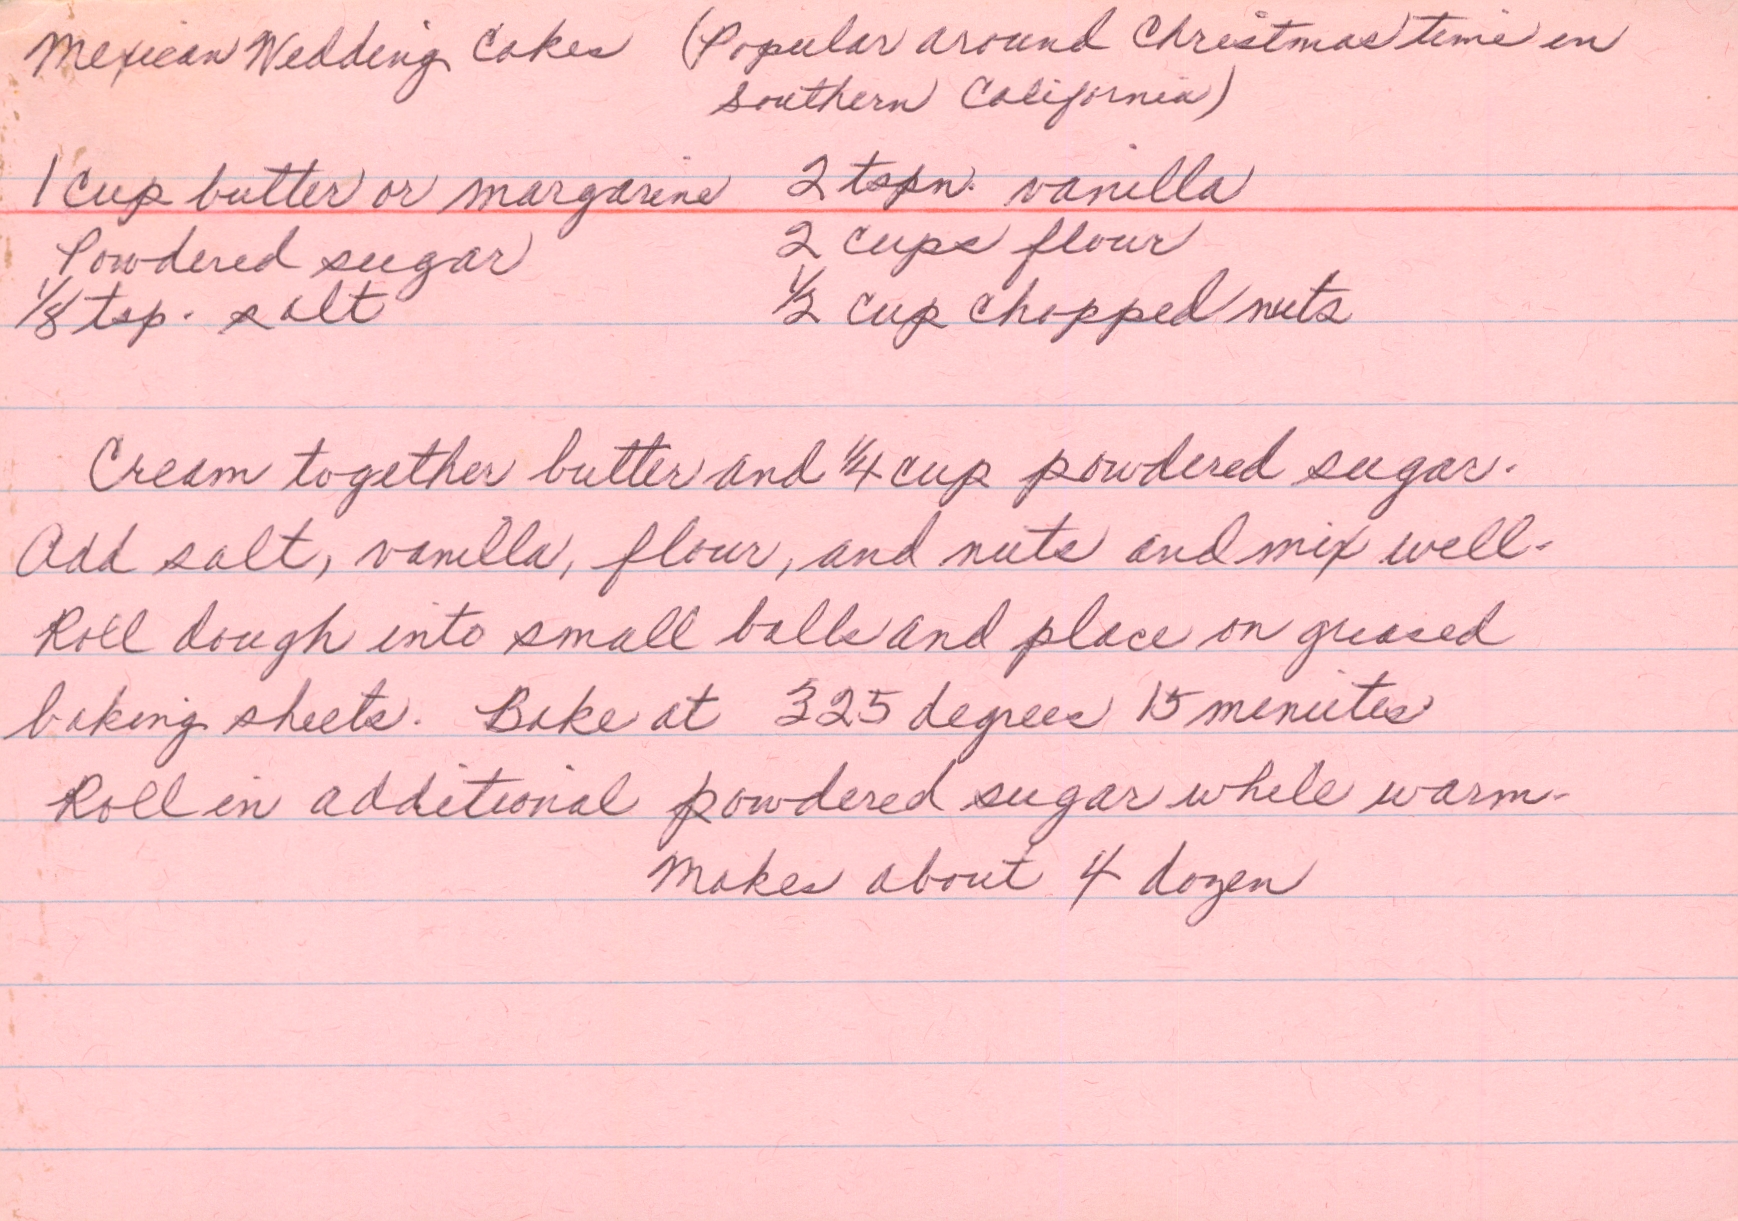 Mexican Wedding Cakes (Popular around Christmas time in
Southern California)
1 cup butter or margarine 2 tspn. vanilla
Powdered sugar 2 cups flour
1/8 tsp. salt 1/2 cup chopped nuts
Cream together butter and 1/4 cup powdered sugar.
Add salt, vanilla, flour, and nuts and mix well.
Roll dough into small balls and place on greased
baking sheets. Bake at 325 degrees 15 minutes
Roll in additional powdered sugar while warm.
Makes about 4 dozen